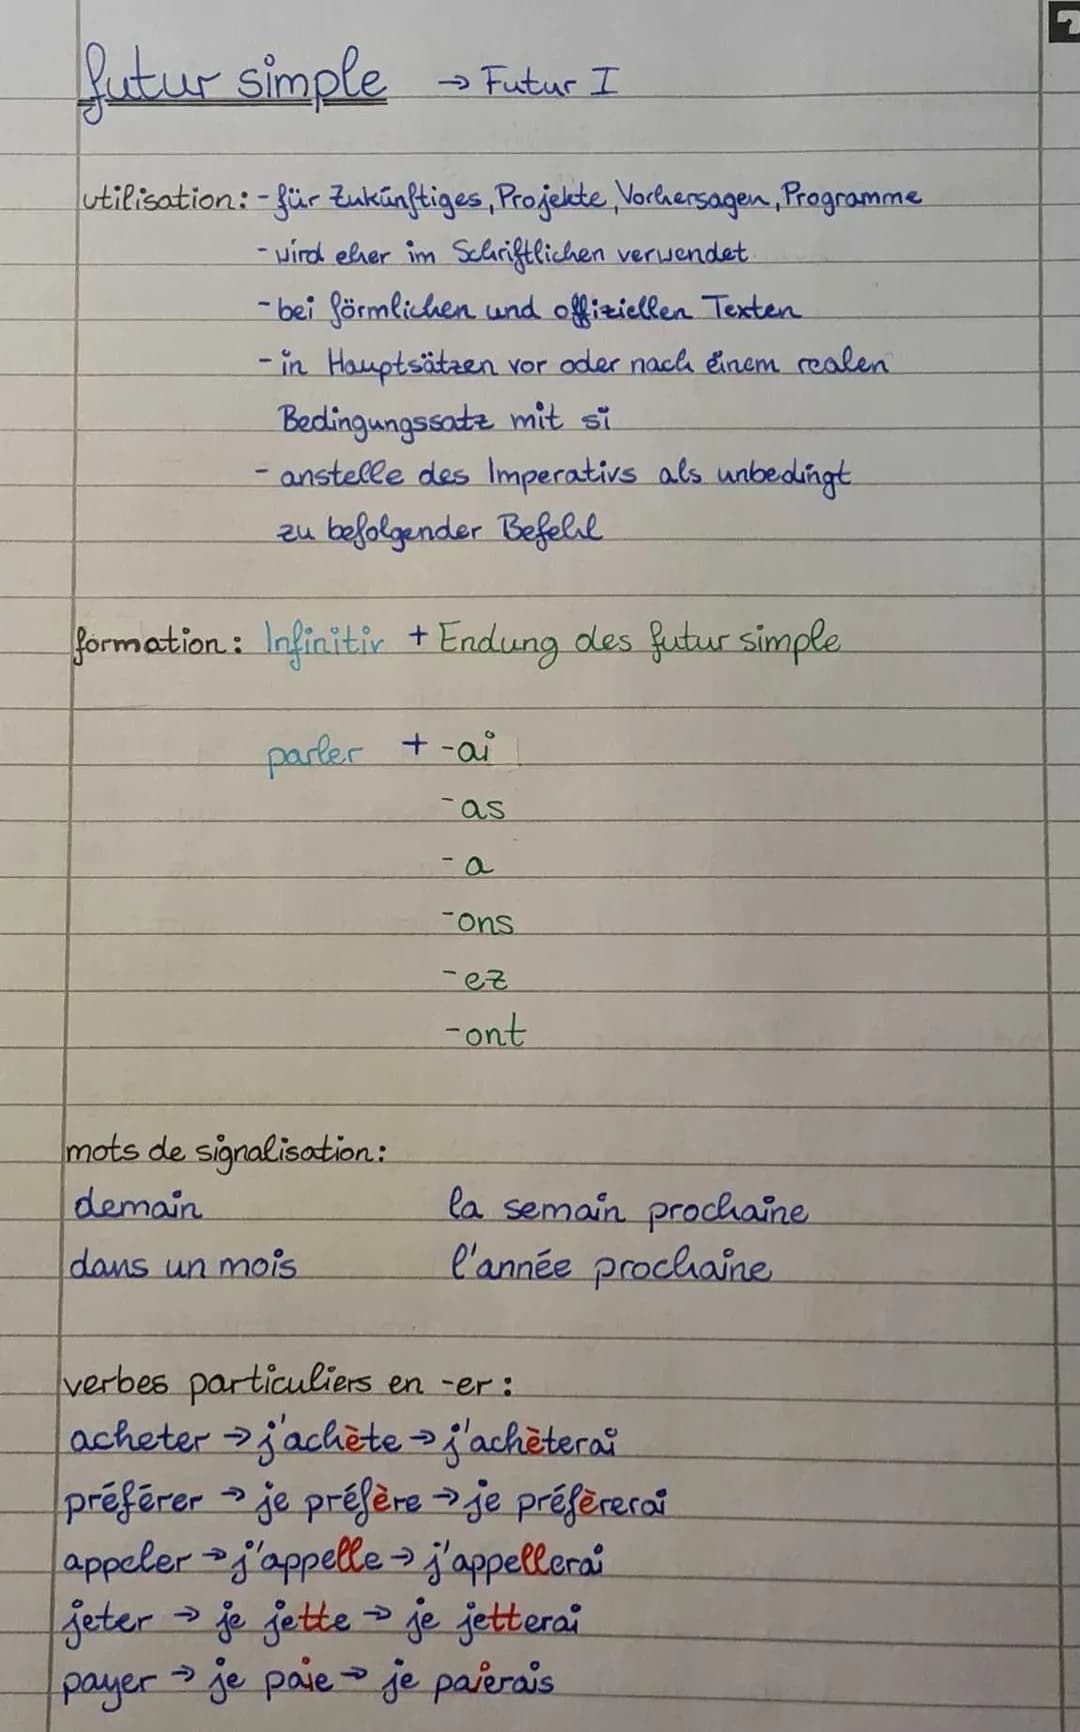 futur simple → Futur I
utilisation: - für Zukünftiges, Projekte, Vorhersagen, Programme
- wird eher im Schriftlichen verwendet
- bei förmlichen und offiziellen Texten
- in Hauptsätzen vor oder nach einem realen
Bedingungssatz mit si
- anstelle des Imperativs als unbedingt
zu befolgender Befehl
formation: Infinitiv + Endung des futur simple
parler + -ai
-as
-a
-ons
-ez
-ont
mots de signalisation:
demain la semain prochaine
dans un mois l'année prochaine
verbes particuliers en -er:
acheter → j'achète → j'achèterai
préférer → je préfère → je préfèrerai
appeler → j'appelle → j'appellerai
jeter → je jette → je jetterai
payer → je paie → je paierais